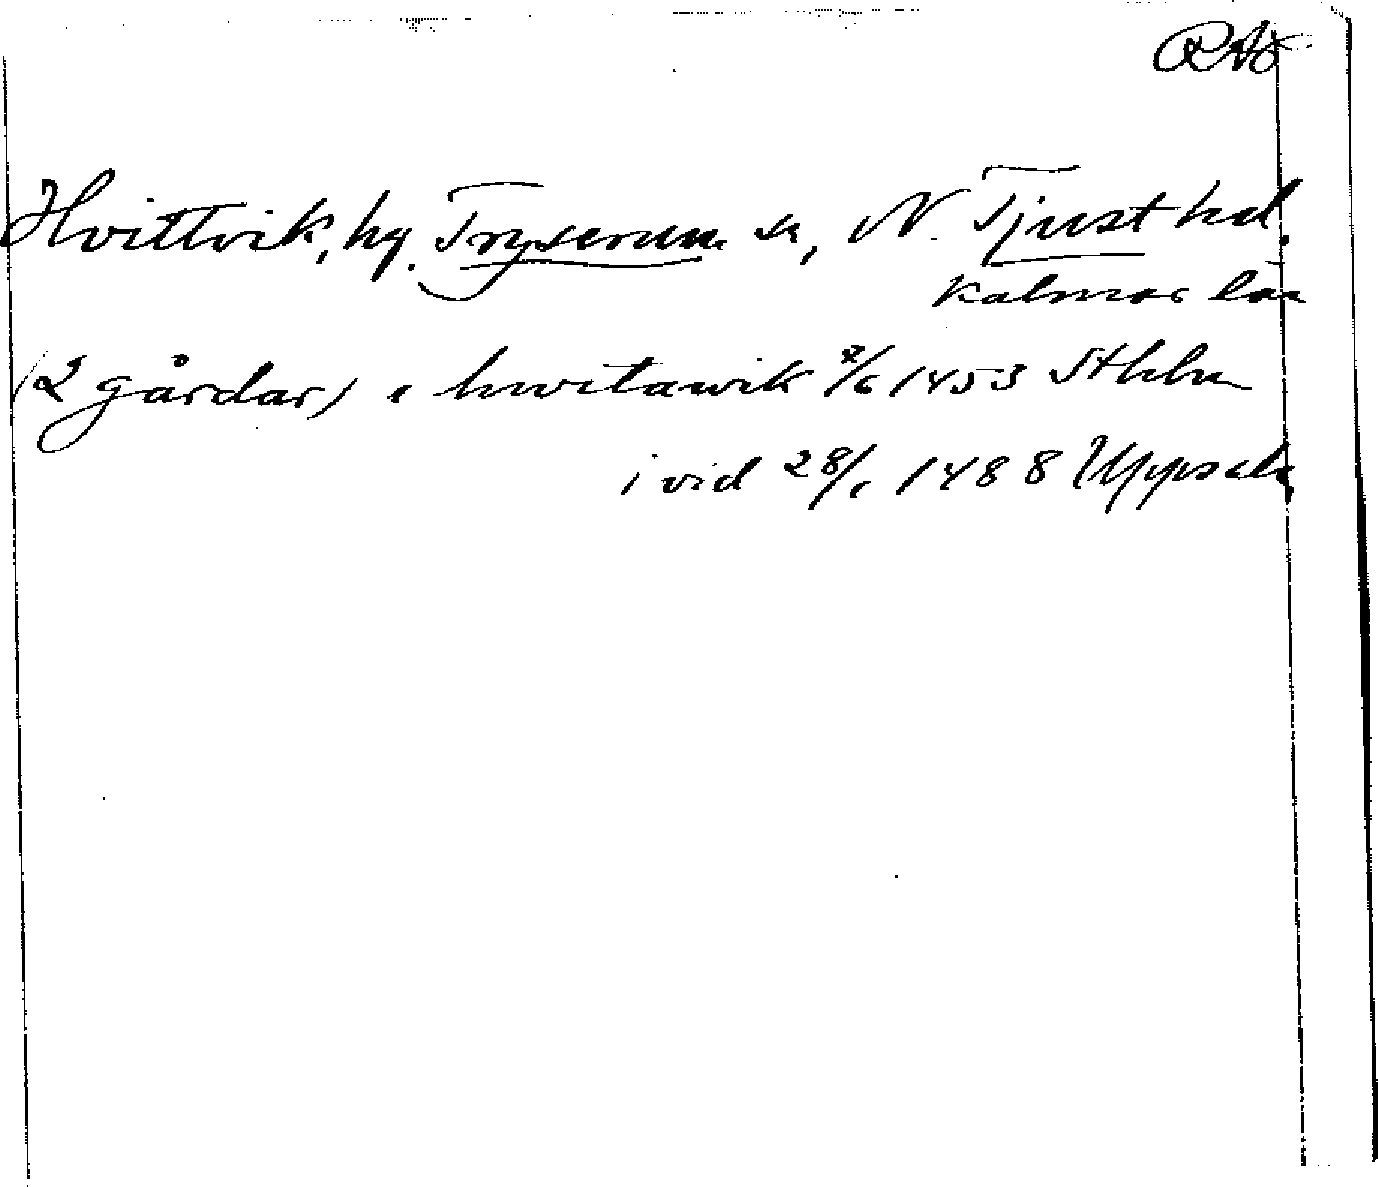 RAö
Hvittvik, hg. Tryserum sn, N. Tjust hd.
Kalmar län
(2 gårdar) i hwitawik 7/6 1453 Sthlm
i vid 28/1 1488 Uppsala